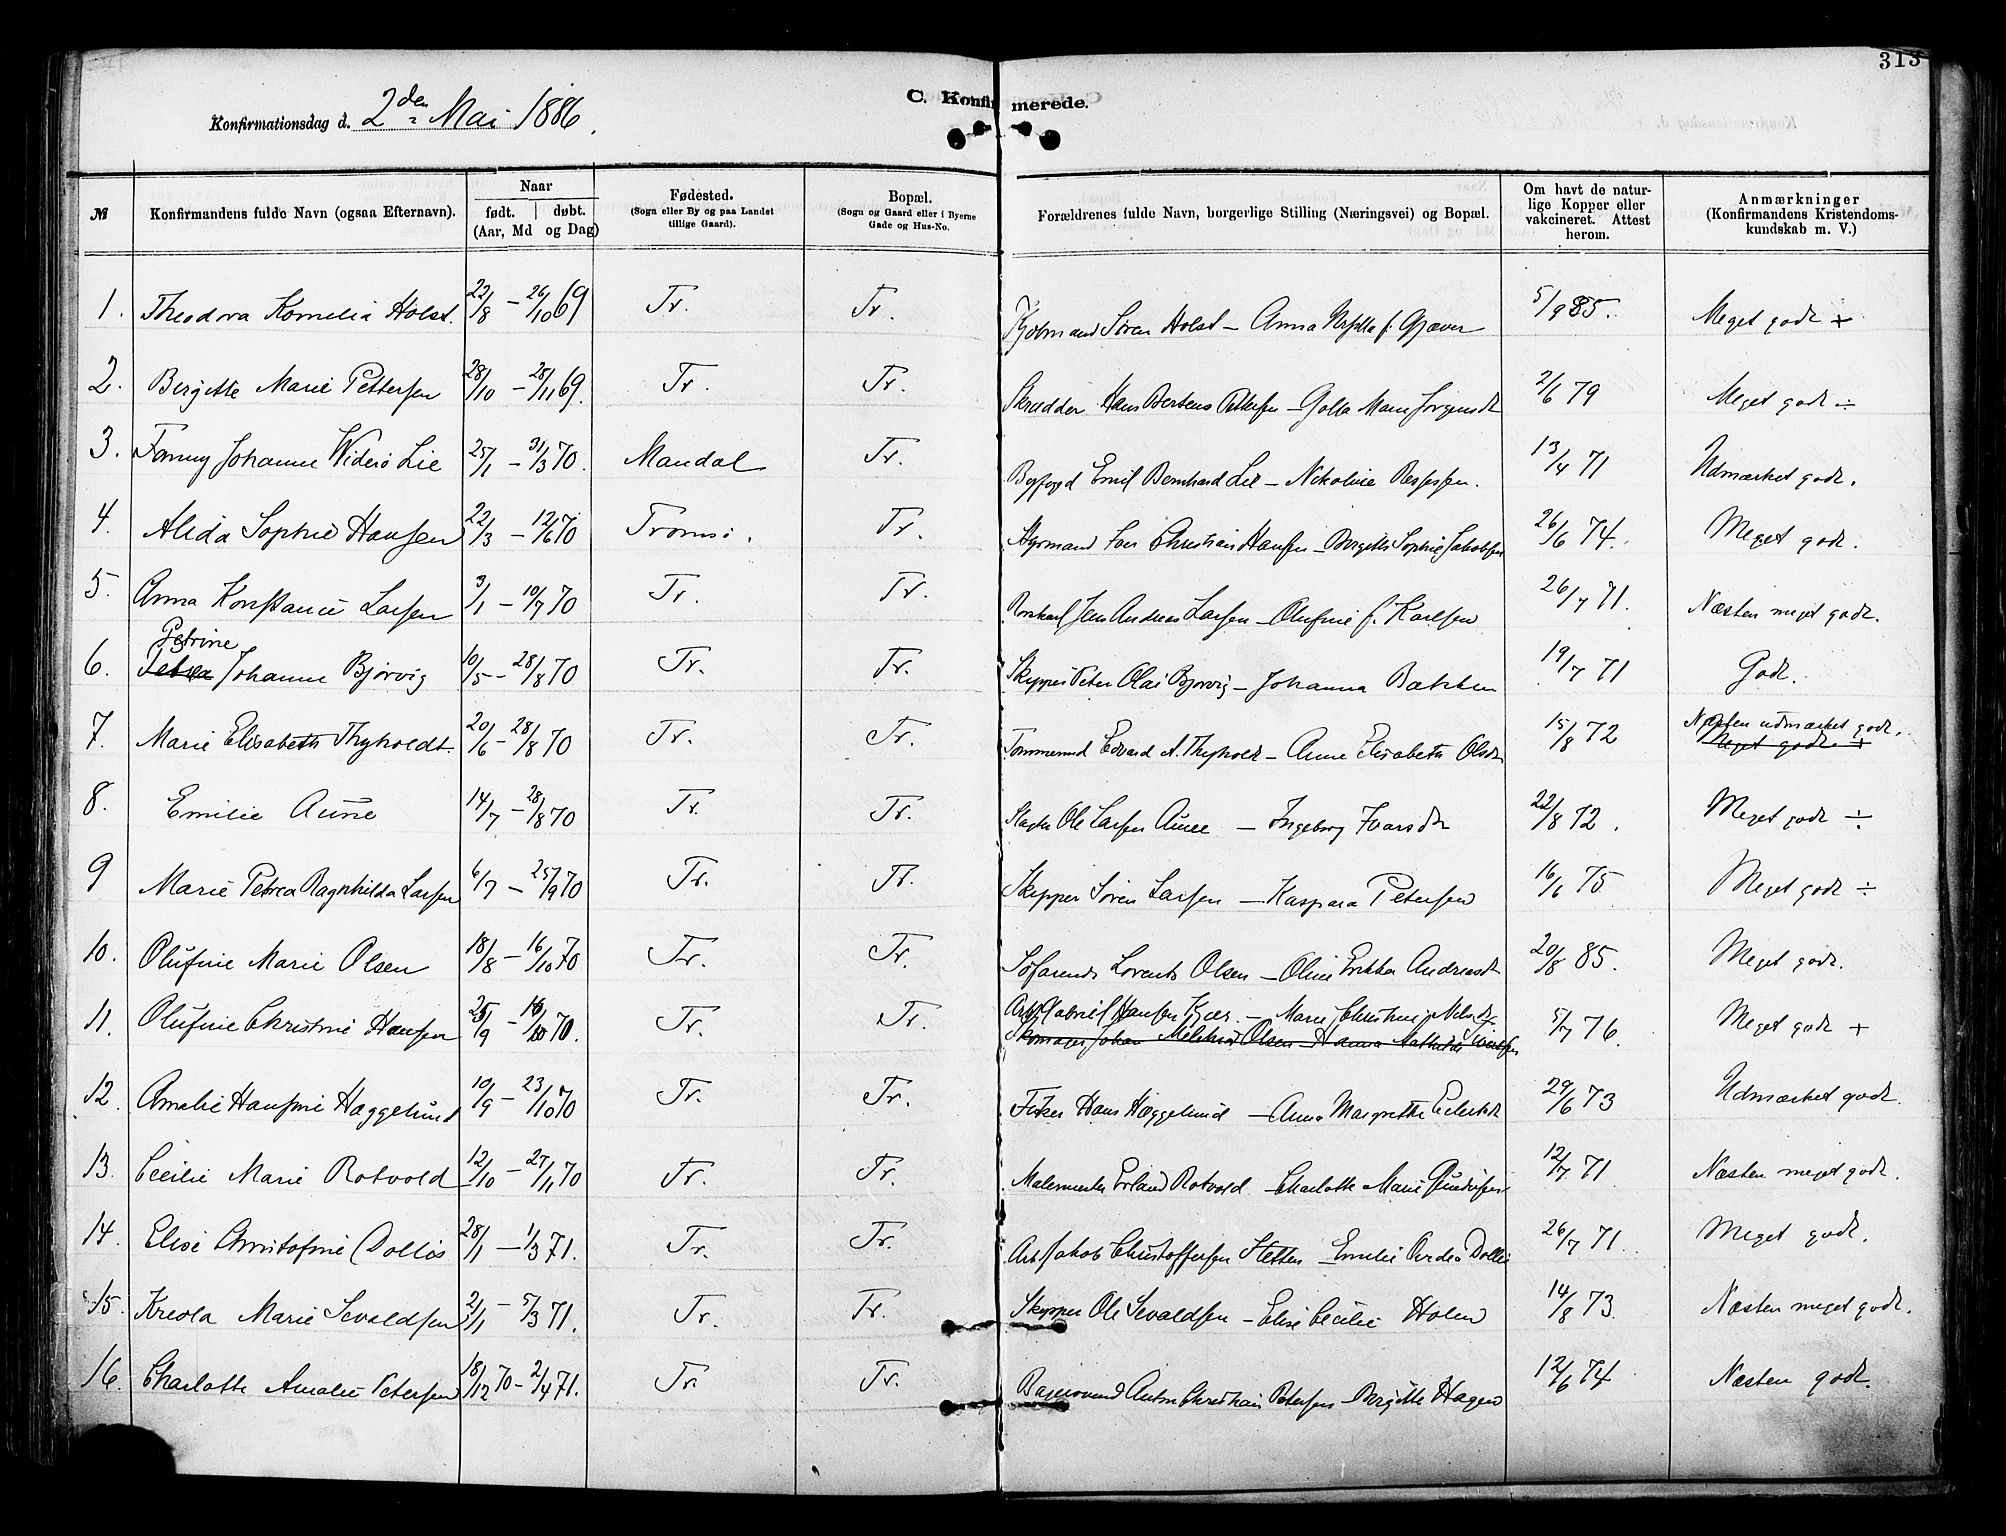 313
C. Konfirmerede.
Konfirmationsdag d. 2den Mai 1886.
№
Konfirmandens fulde Navn (ogsaa Efternavn).
Naar
født. | døbt.
(Aar, Md og Dag)
Fødested.
(Sogn eller By og paa Landet tillige Gaard).
Bopæl.
(Sogn og Gaard eller i Byerne Gade og Hus-No.
Forældrenes fulde Navn, borgerlige Stilling (Næringsvei) og Bopæl.
Om havt de naturlige Kopper eller vakcineret. Attest herom.
Anmærkninger
(Konfirmandens Kristendomskundskab m. V.)
1. Theodora Kornelia Holst. 22/8 – 26/10 69 Tr. Tr. Kjøbmand Søren Holst – Anna f. Gjæver 5/9 85. Meget godt +
2. Bergitte Marie Pettersen 28/10 – 28/11 69. Tr. Tr. Skrædder Hans Pettersen – Golla Marie Jørgensdt 2/6 79 Meget godt ÷
3. Fanny Johanne Widerø Lie 25/1 – 31/3 70. Mandal Tr. Byfoged Emil Bernhard Lie – Nikoline 13/4 71 Udmærket godt.
4. Alida Sophie Hansen 22/3 – 12/6 70 Tromsø. Tr. Styrmand Iver Christian Hansen – Bergitte Sophie Jakobsen 26/6 74. Meget godt.
5. Anna Konstance Larsen 3/1 – 10/7 70 Tr. Tr. Jens Andreas Larsen – Olufine f. Karlsen 26/7 71. Næsten meget godt.
Petrine
6. Petrea Johanne Bjørvig 10/5 – 28/8 70 Tr. Tr. Skipper Peter Olai Bjørvig – Johanna Bakken 19/7 71 Godt.
7. Marie Elisabeth Thyholdt 20/6 – 28/8 70 Tr. Tr. Tømmermd Edvard A. Thyholdt – Anne Elisabeth Olsdt 15/8 72 Næsten udmærket godt.
Meget godt +
8. Emilie Aune 14/7 – 28/8 70 Tr. Tr. Slagter Ole Larsen Aune – Ingeborg Ivarsdt 22/8 72. Meget godt ÷
9 Marie Petrea Ragnhilda Larsen 6/7 – 25/9 70 Tr. Tr. Skipper Søren Larsen – Kaspara Petersen 16/6 75 Meget godt ÷
10. Olufine Marie Olsen 18/8 – 16/10 70 Tr. Tr. Søfarende Lorents Olsen – Oline Erikka Andreasdt 20/8 85. Meget godt.
11. Olufine Christine Hansen 25/9 – 16/10 70. Tr. Tr. Arb. Gabriel Hansen Kjær. – Marie Christine Nilsdt 5/7 76. Meget godt +
Skomager Johan Melchior Olsen – Hanna Mathilde
12. Amalie Hansine Hæggelund 10/9 – 23/10 70 Tr. Tr. Fisker Hans Hæggelund – Anna Margrethe 29/6 73 Udmærket godt
13. Cecilie Marie Rotvold 12/10 – 27/11 70 Tr. Tr. Malermester Erland Rotvold – Charlotte Marie 12/7 71 Næsten meget godt.
14. Elise Christofine Colliøs 28/1 – 1/3 71. Tr. Tr. Arb. Jakob Christoffersen – Emilie 26/7 71. Meget godt.
15. Kreola Marie Sevaldsen 2/1 – 5/3 71. Tr. Tr. Skipper Ole Sevaldsen – Elise Cecilie Holm 14/8 73. Næsten meget godt.
16. Charlotte Amalie Petersen 18/12 70 – 2/4 71. Tr. Tr. Anton Christian Petersen – Bergitte Hagen 12/6 74 Næsten godt.